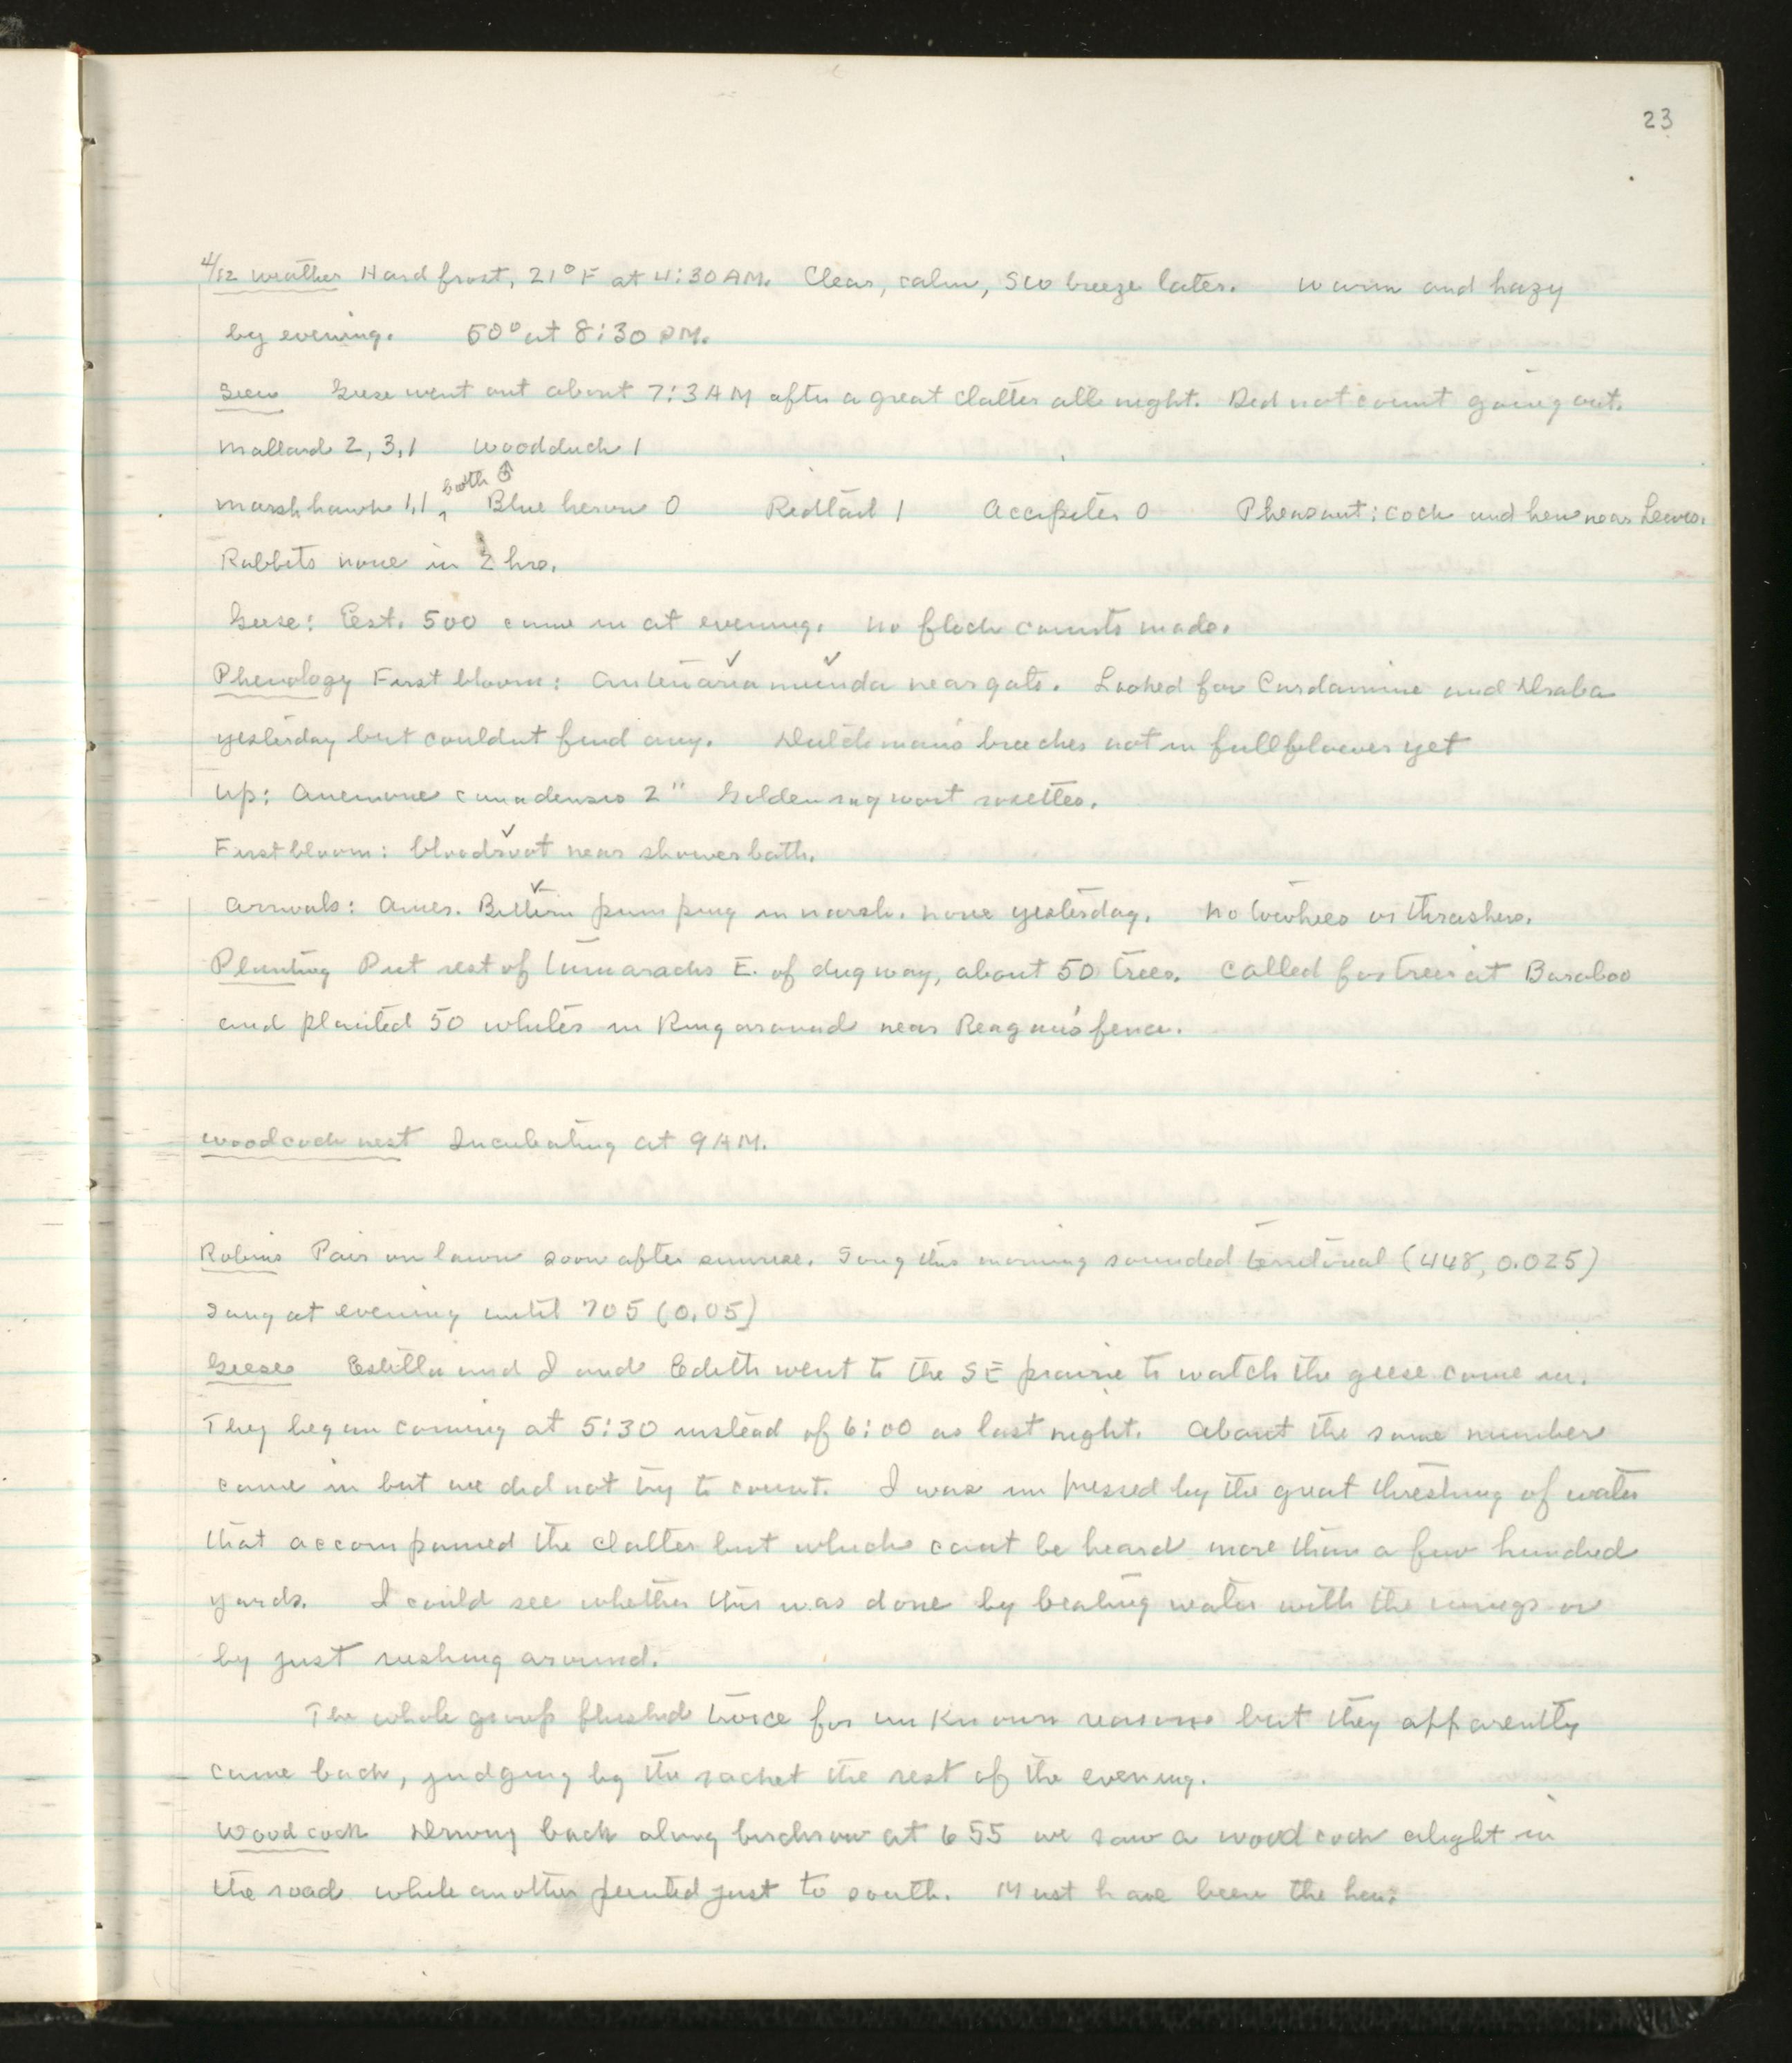 23
4/12 Weather Hard frost, 21° F at 4:30 AM. Clear, calm, SW breeze later. Warm and hazy
by evening. 50° at 8:30 PM.
Seen Geese went out about 7:3 AM after a great clatter all night. Did not count going out.
Mallard 2, 3, 1 Woodduck 1
both ♂
Marsh hawk 1, 1, Blue heron 0 Redtail 1 Accipiter 0 Pheasant: cock and hen near Lewis.
Rabbits none in 2 hrs.
Geese: Est. 500 came in at evening. No flock counts made.
Phenology First bloom: Antenaria near gate. Looked for Cardamine and Draba
yesterday but couldnt find any. Dutchmans breeches not in full flower yet
Up: Anemone canadensis 2" Golden ragwort rosettes.
First bloom: bloodroot near shower bath.
Arrivals: Amer. Bittern pumping in marsh. none yesterday. No towhees or thrashers.
Planting Put rest of tamaracks E. of dugway, about 50 trees. Called for trees at Baraboo
and planted 50 whites in Ringaround near Reagan's fence.
Woodcock nest Incubating at 9 AM.
Robins Pair on lawn soon after sunrise. Song this morning sounded territorial (448, 0.025)
Sang at evening until 705 (0.05)
Geese Estella and I and Edith went to the SE prairie to watch the geese come in.
They began coming at 5:30 instead of 6:00 as last night. About the same number
came in but we did not try to count. I was impressed by the great threshing of water
that accompanied the clatter but which cant be heard more than a few hundred
yards. I could see whether this was done by beating water with the wings or
by just rushing around.
The whole group flushed twice for unknown reasons but they apparently
came back, judging by the racket the rest of the evening.
Woodcock Driving back along birchrow at 655 we saw a woodcock alight in
the road while another peented just to south. Must have been the hen.